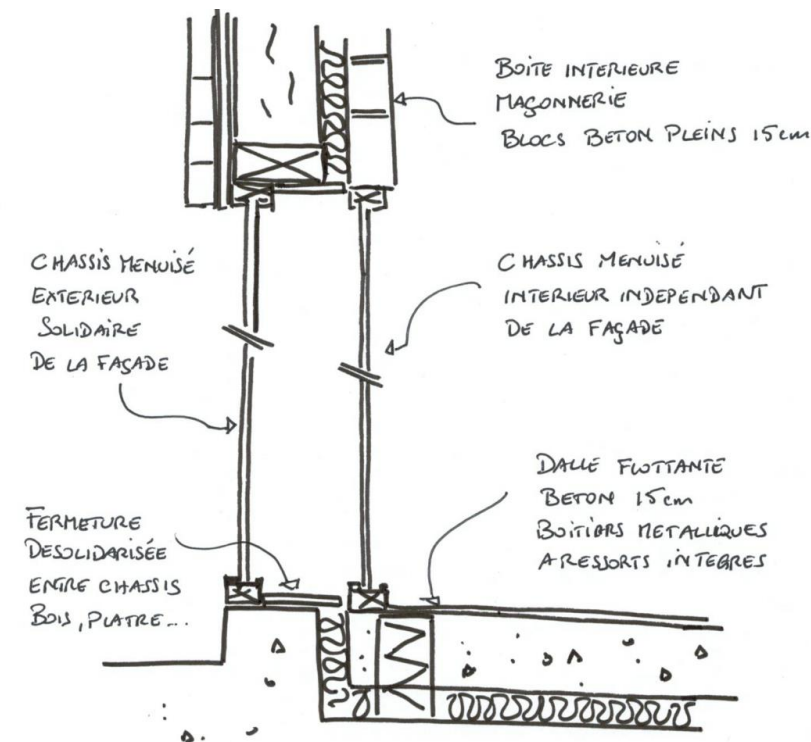 BOITE INTERIEURE
MAÇONNERIE
BLOCS BETON PLEINS 15cm
CHASSIS MENUISÉ
EXTERIEUR
SOLIDAIRE
DE LA FAÇADE
CHASSIS MENUISÉ
INTERIEUR INDEPENDANT
DE LA FAÇADE
DALLE FLOTTANTE
BETON 15cm
BOITIERS METALLIQUES
A RESSORTS INTEGRES
FERMETURE
DESOLIDARISÉE
ENTRE CHASSIS
BOIS, PLATRE...